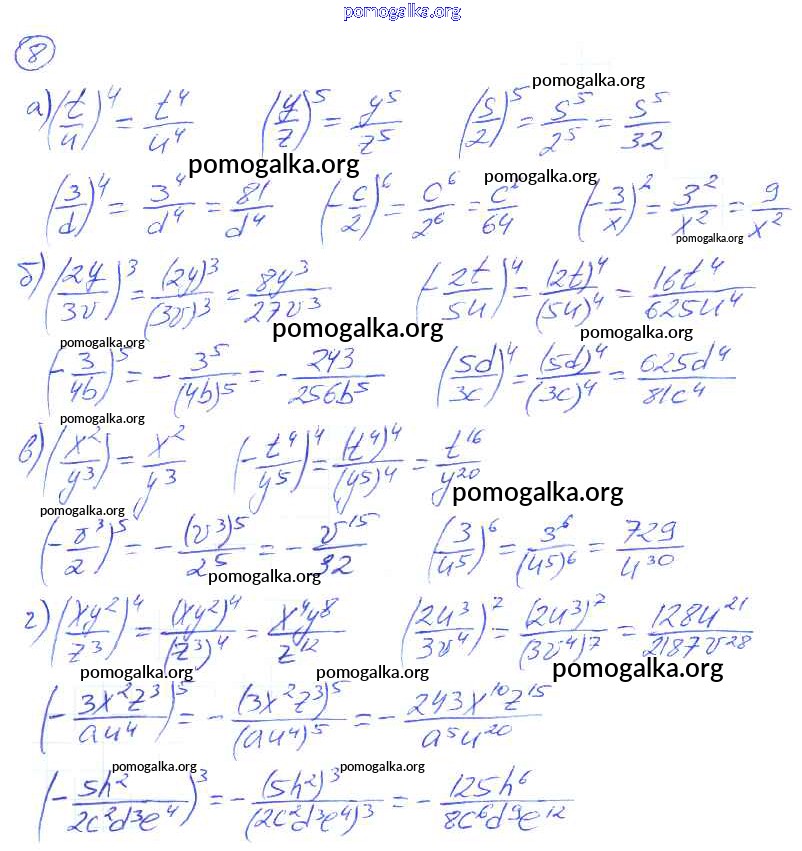 pomogalka.org
8
pomogalka.org
а) (t/u)^4 = t^4/u^4 (y/z)^5 = y^5/z^5 (s/2)^5 = s^5/2^5 = s^5/32
pomogalka.org pomogalka.org
(3/d)^4 = 3^4/d^4 = 81/d^4 (-c/2)^6 = c^6/2^6 = c^6/64 (-3/x)^2 = 3^2/x^2 = 9/x^2
pomogalka.org
б) (2y/3v)^3 = (2y)^3/(3v)^3 = 8y^3/27v^3 (-2t/5u)^4 = (2t)^4/(5u)^4 = 16t^4/625u^4
pomogalka.org pomogalka.org pomogalka.org
(-3/4b)^5 = -3^5/(4b)^5 = -243/256b^5 (5d/3c)^4 = (5d)^4/(3c)^4 = 625d^4/81c^4
pomogalka.org
в) (x^2/y^3) = x^2/y^3 (-t^4/y^5)^4 = (t^4)^4/(y^5)^4 = t^16/y^20
pomogalka.org pomogalka.org
(-v^3/2)^5 = -(v^3)^5/2^5 = -v^15/32 (3/u^5)^6 = 3^6/(u^5)^6 = 729/u^30
pomogalka.org
г) (xy^2/z^3)^4 = (xy^2)^4/(z^3)^4 = x^4y^8/z^12 (2u^3/3v^4)^7 = (2u^3)^7/(3v^4)^7 = 128u^21/2187v^28
pomogalka.org pomogalka.org pomogalka.org
(-3x^2z^3/au^4)^5 = -(3x^2z^3)^5/(au^4)^5 = -243x^10z^15/a^5u^20
pomogalka.org pomogalka.org
(-5h^2/2c^2d^3e^4)^3 = -(5h^2)^3/(2c^2d^3e^4)^3 = -125h^6/8c^6d^9e^12